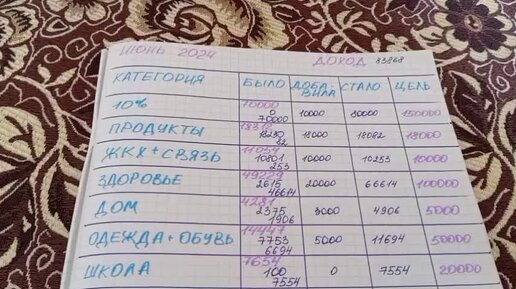 ИЮНЬ 2024 ДОХОД 83868
КАТЕГОРИЯ БЫЛО ДОБА- СТАЛО ЦЕЛЬ
ВИЛА
10% 70000
0 10000 80000 150000
70000
ПРОДУКТЫ 18312
18230 18000 18082 18000
82
ЖКХ+СВЯЗЬ 11054
10801 10000 10253 10000
253
ЗДОРОВЬЕ 49229
2615 20000 66614 100000
46614
ДОМ 4281
2375 3000 4906 5000
1906
ОДЕЖДА+ОБУВЬ 14447
7753 5000 11694 50000
6694
ШКОЛА 7654
100 0 7554 20000
7554